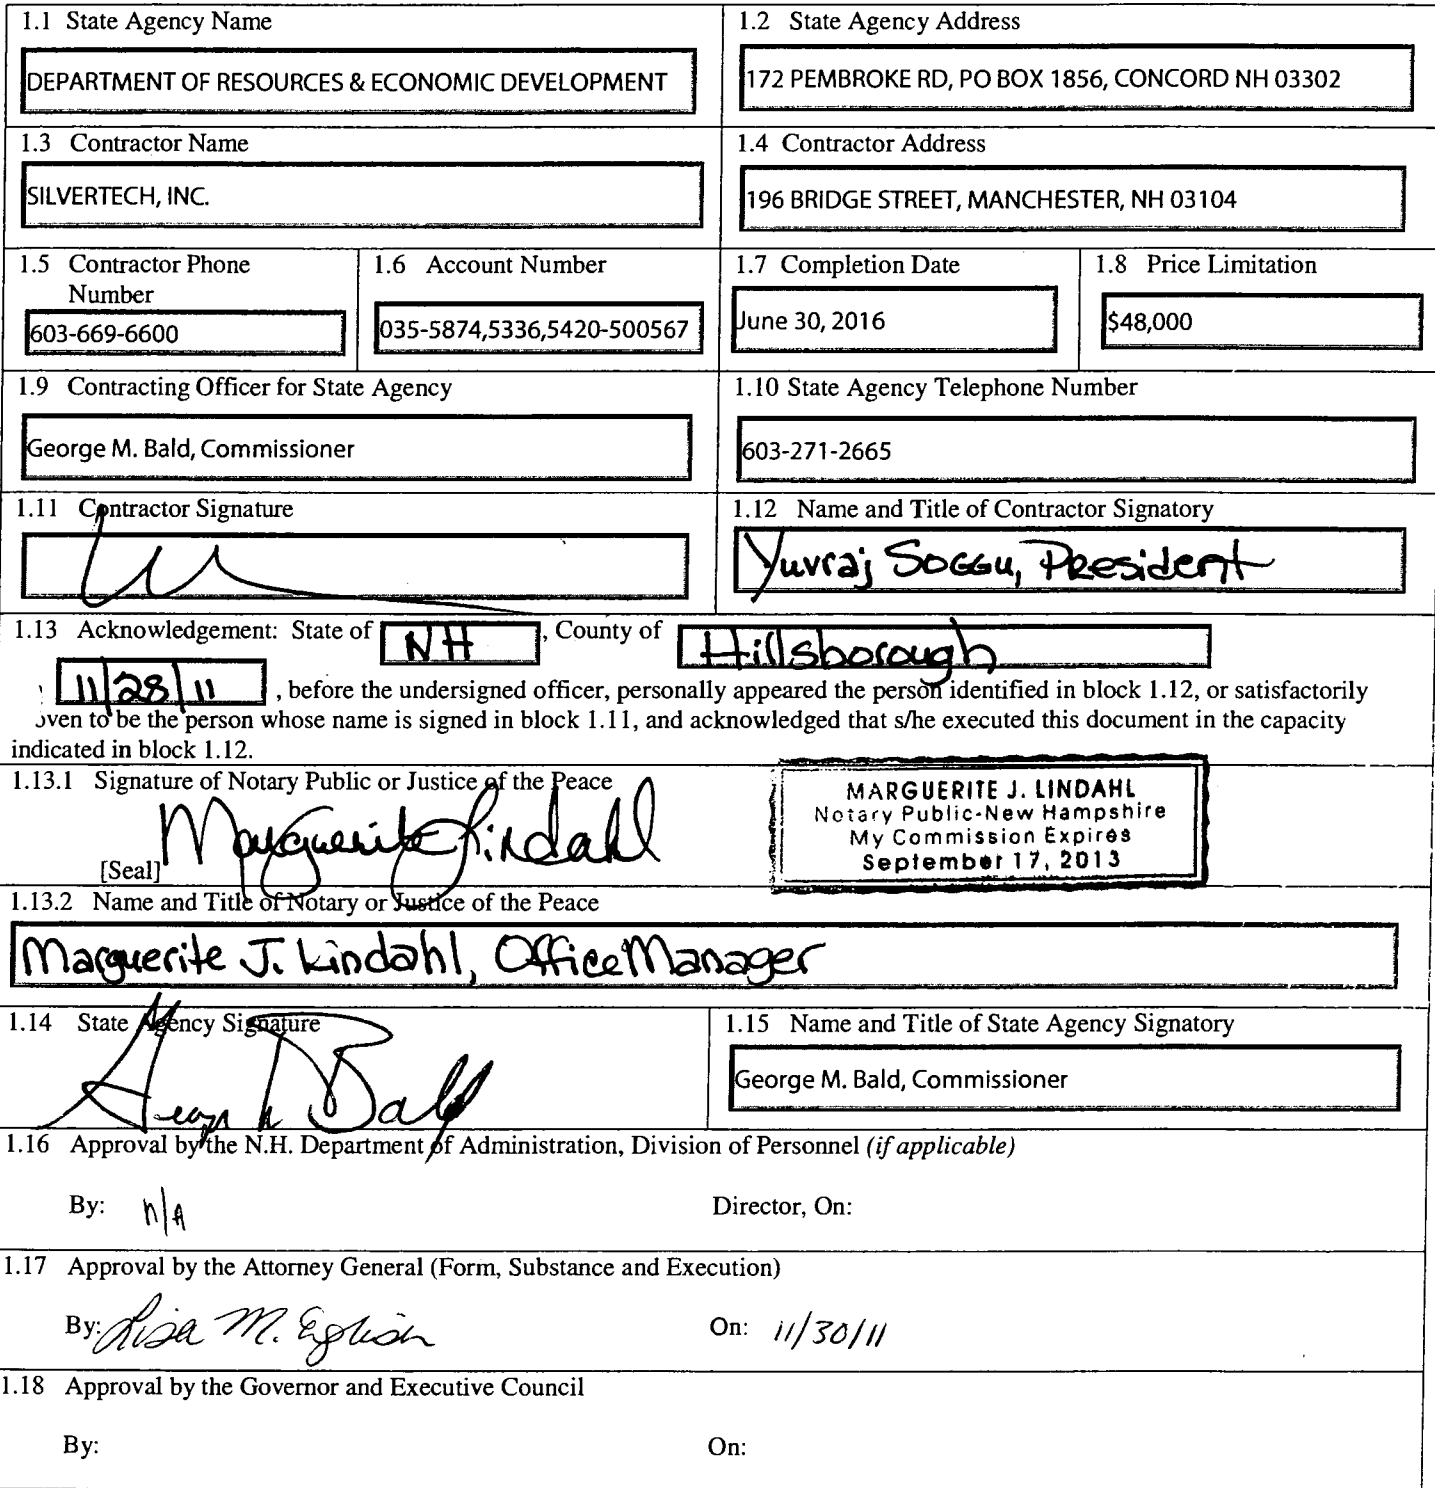 1.1 State Agency Name
1.2 State Agency Address
DEPARTMENT OF RESOURCES & ECONOMIC DEVELOPMENT
172 PEMBROKE RD, PO BOX 1856, CONCORD NH 03302
1.3 Contractor Name
1.4 Contractor Address
SILVERTECH, INC.
196 BRIDGE STREET, MANCHESTER, NH 03104
1.5 Contractor Phone
Number
1.6 Account Number
1.7 Completion Date
1.8 Price Limitation
603-669-6600
035-5874,5336,5420-500567
June 30, 2016
$48,000
1.9 Contracting Officer for State Agency
1.10 State Agency Telephone Number
George M. Bald, Commissioner
603-271-2665
1.11 Contractor Signature
1.12 Name and Title of Contractor Signatory
Yuvraj SOGGU, President
1.13 Acknowledgement: State of NH, County of Hillsborough
11/28/11, before the undersigned officer, personally appeared the person identified in block 1.12, or satisfactorily
oven to be the person whose name is signed in block 1.11, and acknowledged that s/he executed this document in the capacity
indicated in block 1.12.
1.13.1 Signature of Notary Public or Justice of the Peace
Marguerite J Lindahl
[Seal]
MARGUERITE J. LINDAHL
Notary Public-New Hampshire
My Commission Expires
September 17, 2013
1.13.2 Name and Title of Notary or Justice of the Peace
Marguerite J. Lindahl, Office Manager
1.14 State Agency Signature
George M Bald
1.15 Name and Title of State Agency Signatory
George M. Bald, Commissioner
1.16 Approval by the N.H. Department of Administration, Division of Personnel (if applicable)
By: n/A
Director, On:
1.17 Approval by the Attorney General (Form, Substance and Execution)
By: Lisa M. English
On: 11/30/11
1.18 Approval by the Governor and Executive Council
By:
On: